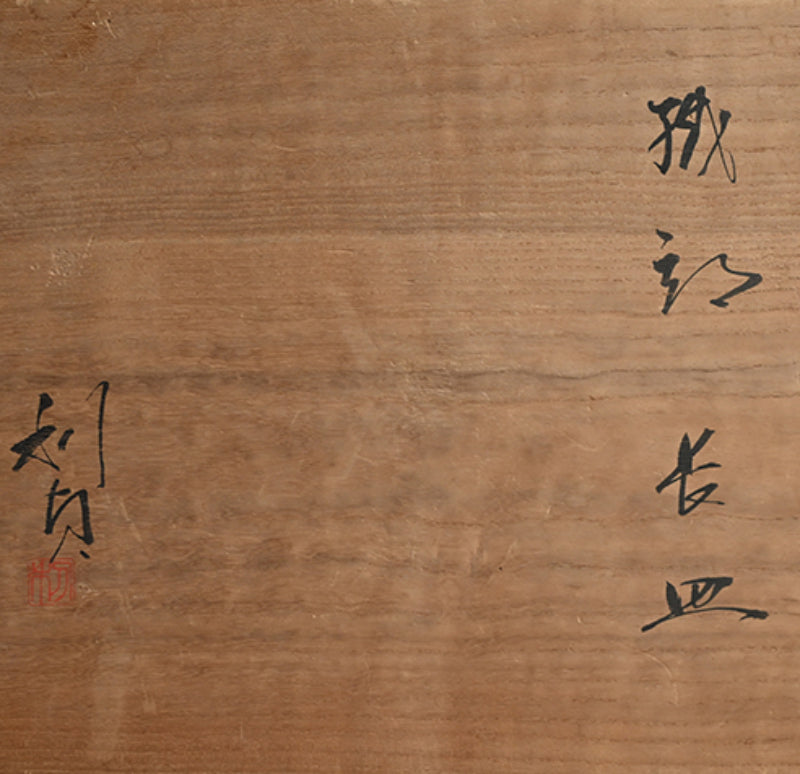 織部 長皿
利